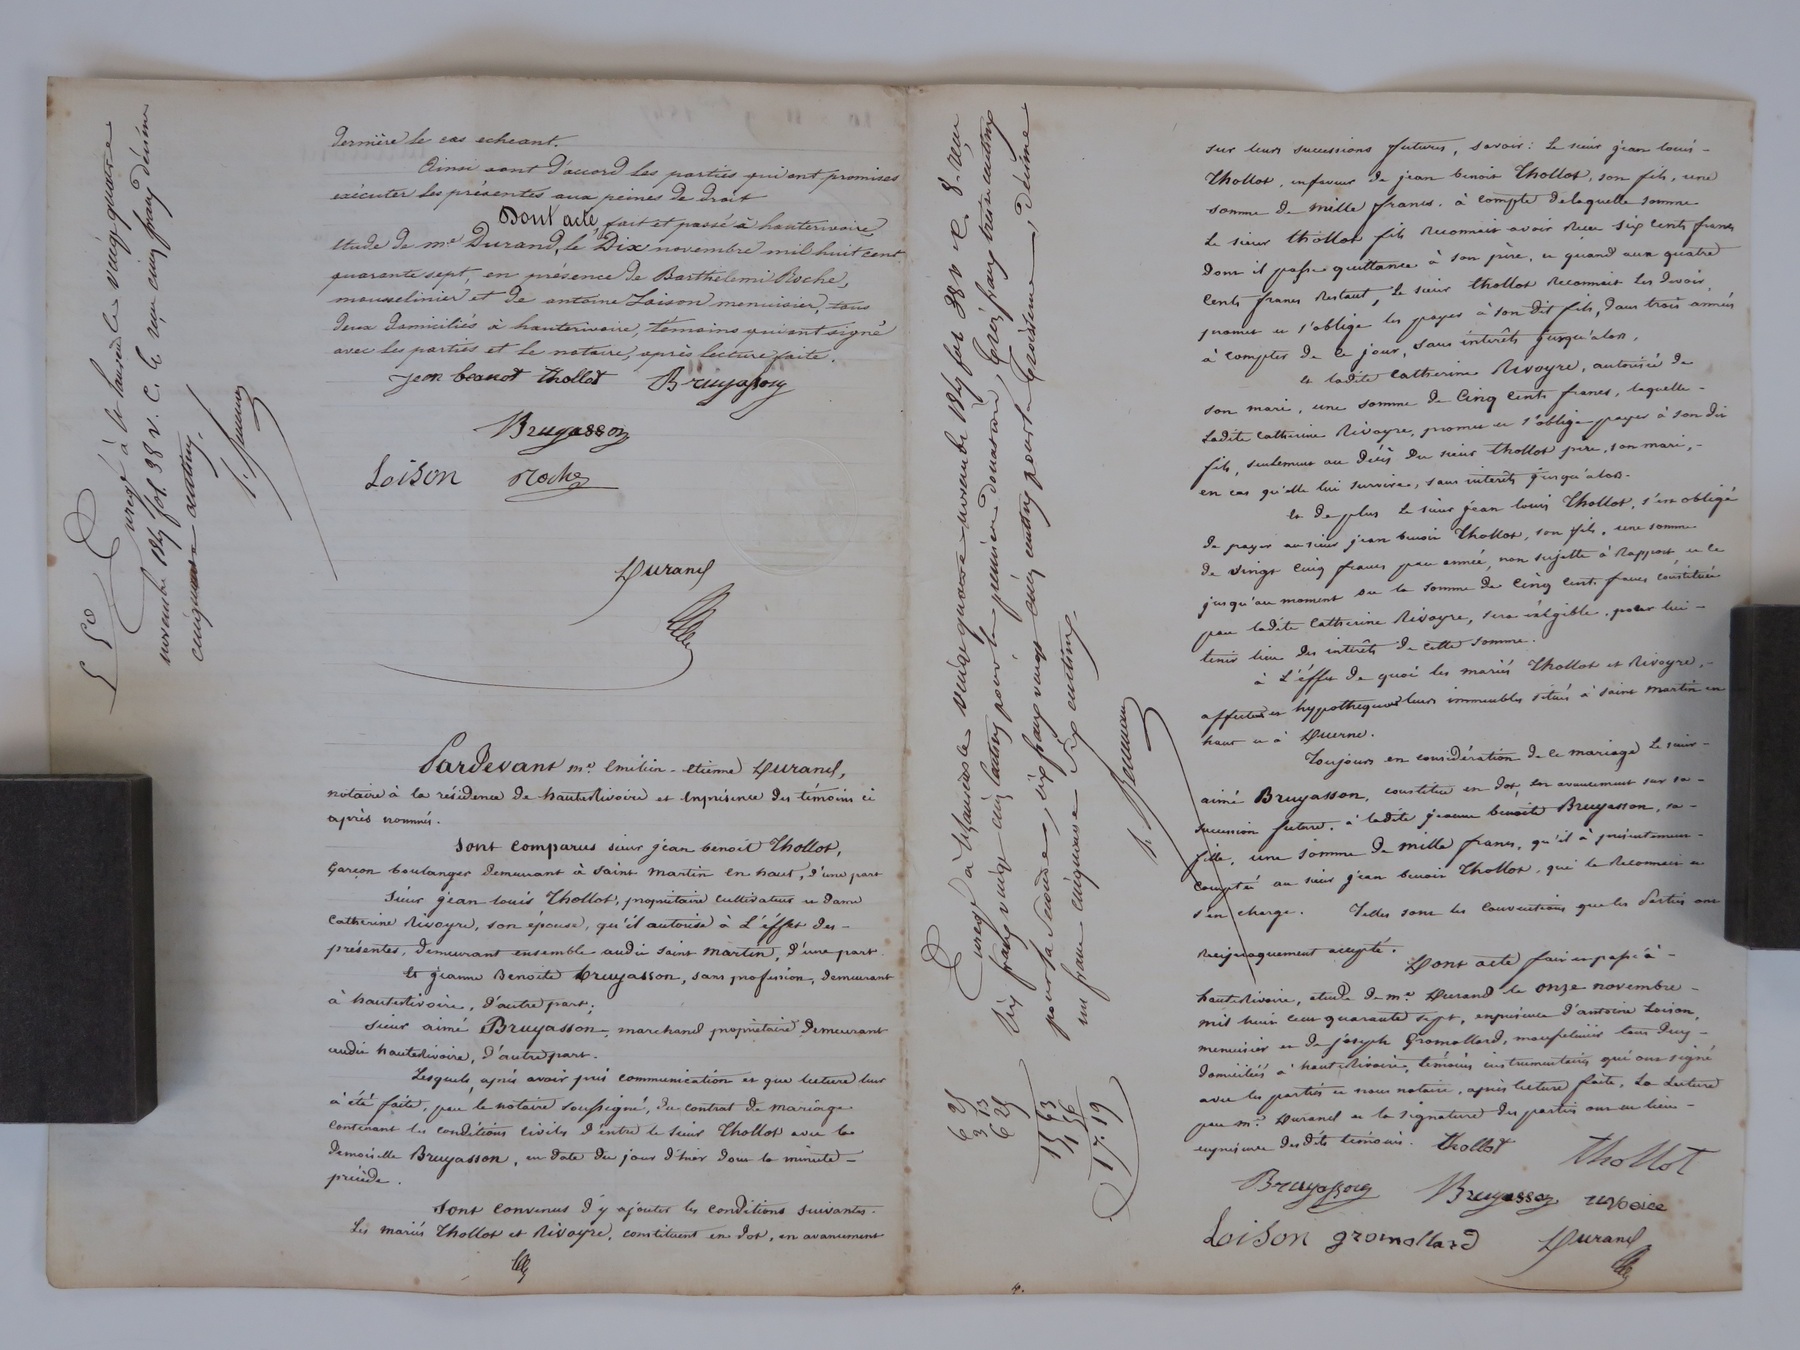 dernière le cas echeant.
Ainsi sont d'accord les parties qui ont promises
exécuter les présentes aux peines de droit
Dont acte, fait et passé à hauterivoire,
étude de me Durand, le Dix novembre mil huit cent
quarante sept, en présence de Barthelemi Roche,
mousselinier et de antoine Loison menuisier, tous
deux domiciliés à hauterivoire, témoins qui ont signé
avec les parties et le notaire, après lecture faite.
jean benoot thollot Bruyasson
Bruyasson
Loison roche
Durand
5 50
Enregé à St Laurent le vingt quatre
novembre 1847 fol. 98 v. C. 6 reçu cinq francs décime
cinquante centimes.
Pardevant me Emilien-Etienne Durand,
notaire à la résidence de hauterivoire et en présence des témoins ci
après nommés.
Sont comparus sieur jean benoit Thollot,
Garçon boulanger demeurant à saint martin en haut, d'une part
Sieur jean louis Thollot, propriétaire cultivateur et dame
Catherine Rivoyre, son épouse, qu'il autorise à L'éffet des-
présentes, demeurant ensemble audit saint martin, d'une part
Et jeanne Benoite bruyasson, sans profession, demeurant
à hauterivoire, d'autre part;
Sieur aimé Bruyasson, marchand propriétaire demeurant
audit hauterivoire, d'autre part.
Lesquels, après avoir pris communication et que lecture leur
à été faite, par le notaire soussigné, du contrat de mariage
contenant les conditions civiles d'entre le sieur Thollot avec la
demoiselle Bruyasson, en date du jour d'hier dont la minute-
précède.
Sont convenus d'y ajouter les conditions suivantes.
Les mariés Thollot et Rivoyre, constituent en dot, en avancement
Enregé à St Laurent le vingt quatre novembre 1847 fol 98 v C. 8. reçu
six francs vingt cinq centimes pour la premiere donation, trois francs treize centimes
pour la seconde, six francs vingt cinq centimes pour la troisieme, décime
un franc cinquante six centimes
6 25
3 13
6 25
15 63
1 56
17.19
sur leurs successions futures, savoir: Le sieur jean louis-
Thollot, en faveur de jean benoit Thollot, son fils, une
somme de mille francs. à compte de laquelle somme
Le sieur thollot fils reconnait avoir reçu six cents francs
dont il passe quittance à son père, et quand aux quatre
cents francs restant, le sieur thollot reconnait les devoir,
promet et s'oblige les payer à son dit fils, dans trois années
à compter de ce jour, sans intérêts jusqu'alors.
Et ladite Catherine Rivoyre, autorisée de
son mari, une somme de Cinq Cents francs, laquelle-
Ladite Catherine Rivoyre, promet et s'oblige payer à son dit
fils, seulement au décès du sieur thollot père, son mari,-
en cas qu'elle lui survive, sans intérêts jusqu'alors.
Et de plus le sieur jean louis Thollot, s'est obligé
de payer au sieur jean benoit Thollot, son fils, une somme
de vingt cinq francs par année, non sujette à rapport et ce
jusqu'au moment ou la somme de Cinq Cents francs constituée
par ladite Catherine Rivoyre, sera exigible, pour lui-
tenir lieu des intérêts de cette somme.
à L'éffet de quoi les mariés Thollot et Rivoyre,-
affectent et hypothequent leurs immeubles situés à saint martin en
haut et à Duerne.
Toujours en considération de ce mariage Le sieur-
aimé Bruyasson, constitue en dot, en avancement sur sa-
succession future, à ladite jeanne benoite Bruyasson, sa-
fille, une somme de mille francs, qu'il à présentement-
compté au sieur jean benoit Thollot, qui le reconnait et
s'en charge. Telles sont les Conventions que les Parties ont
réciproquement accepté.
Dont acte fait et passé à-
hauterivoire, étude de me Durand le onze novembre-
mil huit cent quarante sept, en présence d'antoine Loison,
menuisier et de joseph Gromollard, mousselinier tous deux-
domiciliés à hauterivoire, témoins instrumentaires qui ont signé
avec les parties et nous notaire, après lecture faite. La Lecture
par me Durand et la signature des parties ont eu lieu-
en présence desdits témoins. thollot Thollot
Bruyasson Bruyasson revoire
Loison gromollard Durand